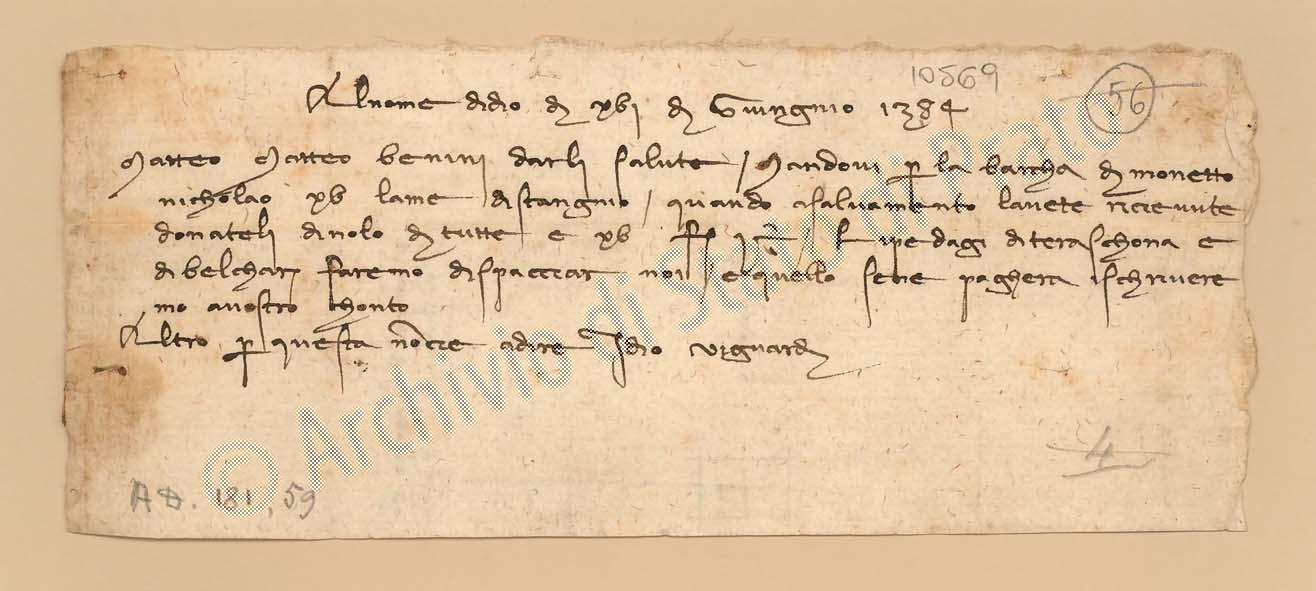 10569
56
Al nome didio di xvi di Giungnio 1384
Matteo Matteo benini darli salute / Mandovi p la barcha di monetto
nicholao xv lame distangnio / quando asalvamento lavete ricievute
donateli dinolo di tutte e xv ipedagi di teraschona e
dibelchari faremo dispacciar noi / e quello sene paghera ischrivere
mo avostro chonto
Altro p questa non cie adire Idio vi guardi
4
AD. 181, 59
© Archivio di Stato di Prato